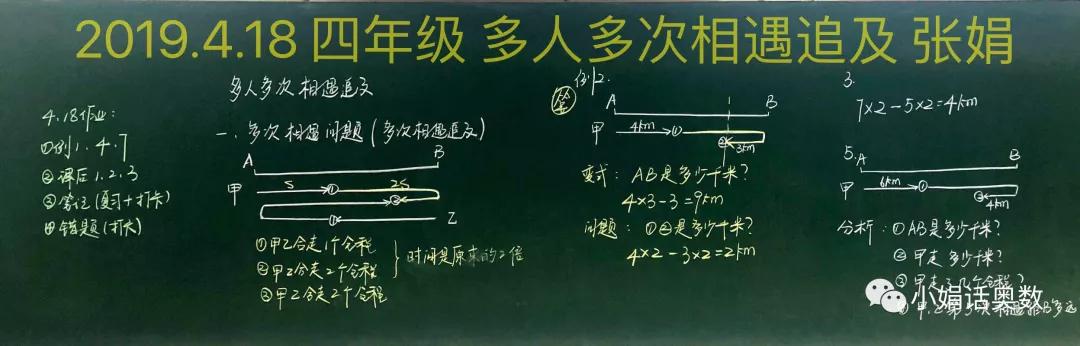 2019.4.18 四年级 多人多次相遇追及 张娟
4.18作业:
①例1.4.7
②课后1.2.3
③笔记(复习+打卡)
④错题(打卡)
多人多次相遇追及
一、多次相遇问题(多次相遇追及)
A B
甲 S ① 2S
②
① 乙
①甲乙合走1个全程
②甲乙合走2个全程
③甲乙合走2个全程
时间是原来的2倍
例2.
A B
甲 4km ①
② 3km
变式: AB是多少千米?
4×3-3=9km
问题: ①②是多少千米?
4×2-3×2=2km
3.
7×2-5×2=4km
5.
A B
甲 6km ①
② 4km
分析: ①AB是多少千米?
②甲走多少千米?
③甲走了几个全程?
小娟话奥数